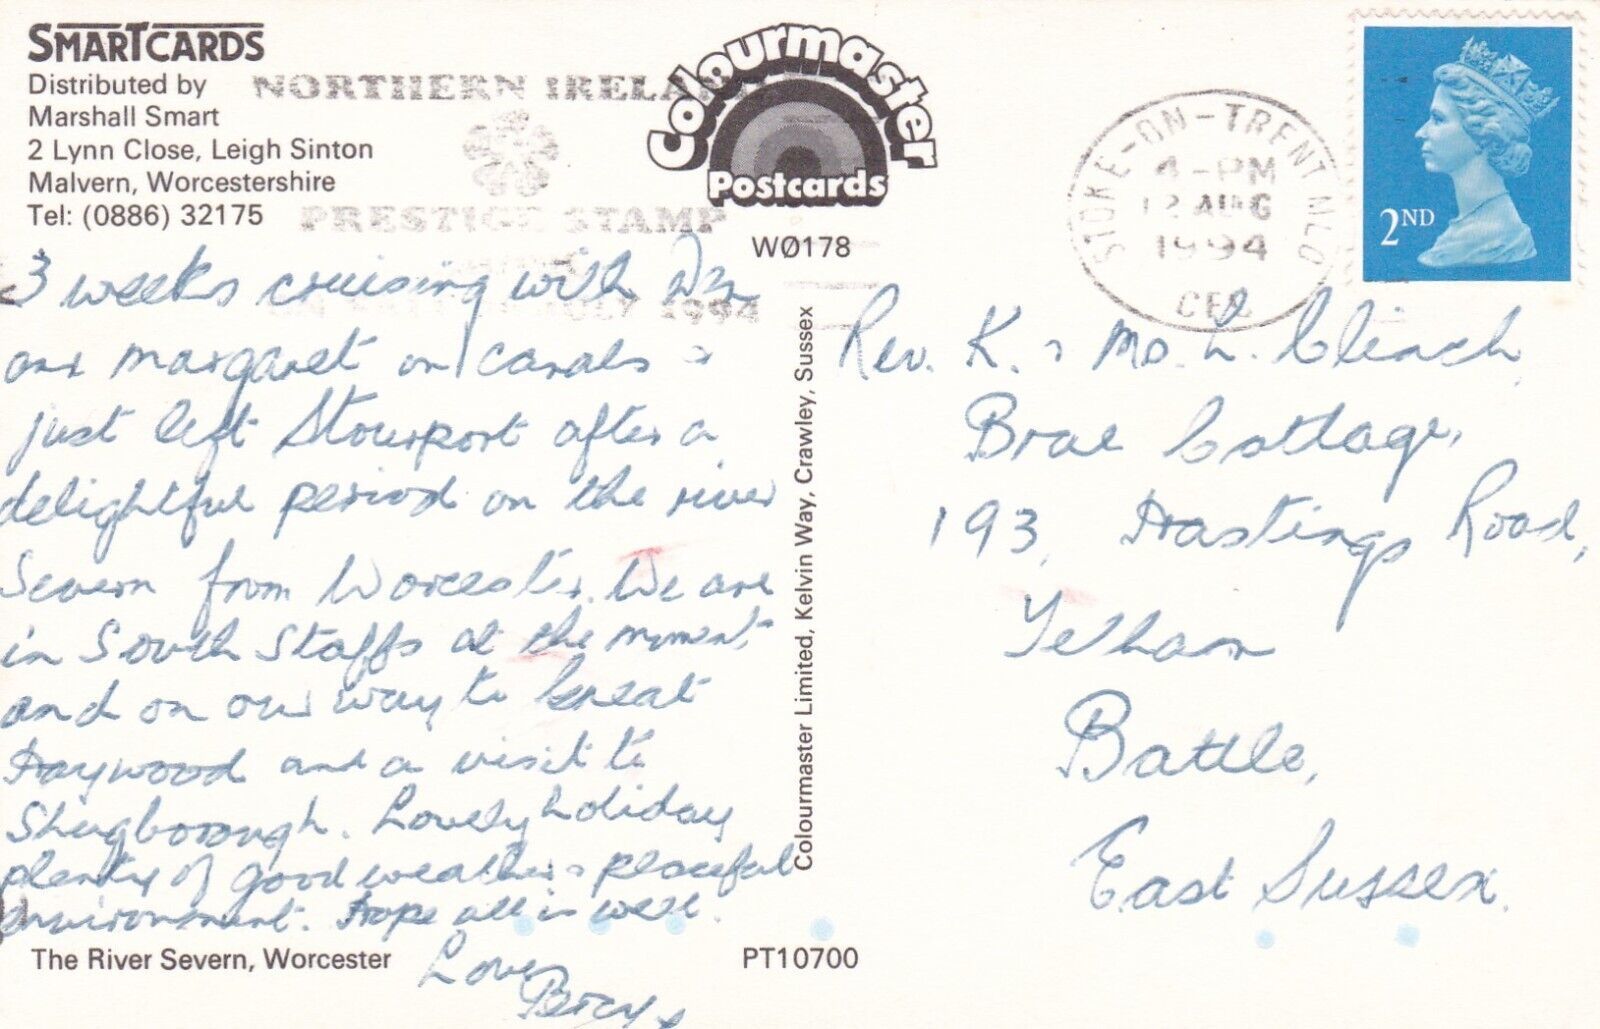 SMARTCARDS
Distributed by
Marshall Smart
2 Lynn Close, Leigh Sinton
Malvern, Worcestershire
Tel: (0886) 32175
NORTHERN IRELAND
PRESTIGE STAMP
JULY 1994
Colourmaster
Postcards
WØ178
STOKE-ON-TRENT MLO
4-PM
12 AUG
1994
2ND
3 weeks cruising with
and Margaret on canals &
just left Stourport after a
delightful period on the river
Severn from Worcester. We are
in South Staffs at the moment
and on our way to Great
Haywood and a visit to
Shugborough. Lovely holiday
plenty of good weather & peaceful
environment. Hope all is well.
Love
x
Colourmaster Limited, Kelvin Way, Crawley, Sussex
Rev. K. & Mrs. L. Clinch,
Brae Cottage,
193, Hastings Road,
Telham
Battle,
East Sussex.
The River Severn, Worcester
PT10700